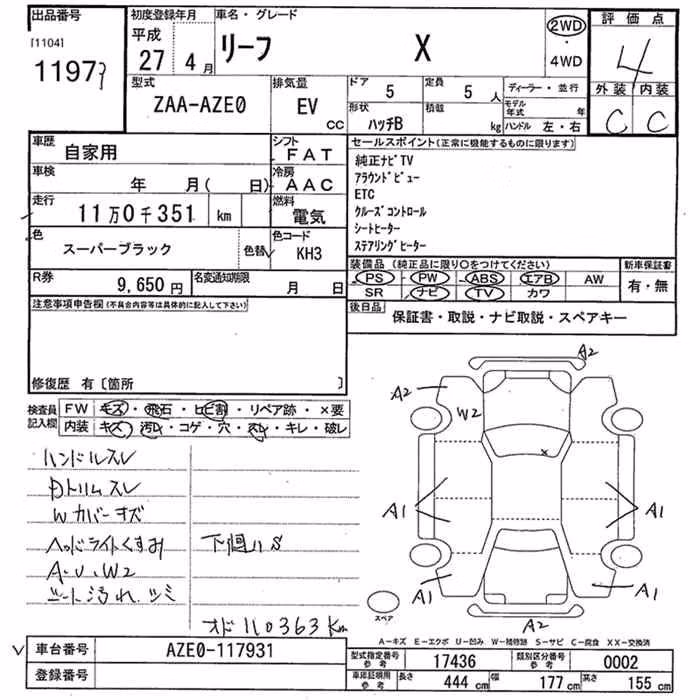 出品番号
[1104]
1197
初度登録年月
平成
27 4月
車名・グレード
リーフ X
2WD
・
4WD
評価点
4
外装 内装
C C
型式
ZAA-AZE0
排気量
EV
CC
ドア
5
定員
5 人
形状
ハッチB
積載
kg
ディーラー・並行
モデル
年式 年
ハンドル 左・右
車歴
自家用
シフト
FAT
車検
年 月( 日)
冷房
AAC
走行
11万0千351 km
燃料
電気
色
スーパーブラック
色替
色コード
KH3
R券
9,650円
名変通知期限
月 日
セールスポイント(正常に機能するものに限ります)
純正ナビTV
アラウンドビュー
ETC
クルーズコントロール
シートヒーター
ステアリングヒーター
装備品 (純正品に限り○をつけてください)
PS PW ABS エアB AW
SR ナビ TV カワ
新車保証書
有・無
後日品
保証書・取説・ナビ取説・スペアキー
注意事項申告欄(不具合内容等は具体的に記入して下さい)
修復歴 有〔箇所 〕
検査員
記入欄
FW キズ・飛石・ヒビ割・リペア跡・×要
内装 キズ・汚レ・コゲ・穴・スレ・キレ・破レ
ハンドルスレ
内トリムスレ
Wカバーキズ
ヘッドライトくすみ
A・U・W2
シート汚れ シミ
下回りS
オド110363Km
A2
A2
W2
×
A1
A1
A1
A1
A2
スペア
A-キズ E-エクボ U-凹み W-補修跡 S-サビ C-腐食 XX-交換済
車台番号
AZE0-117931
登録番号
型式指定番号
参考
17436
類別区分番号
参考
0002
車庫証明用
参考
長さ
444 cm
幅
177 cm
高さ
155 cm